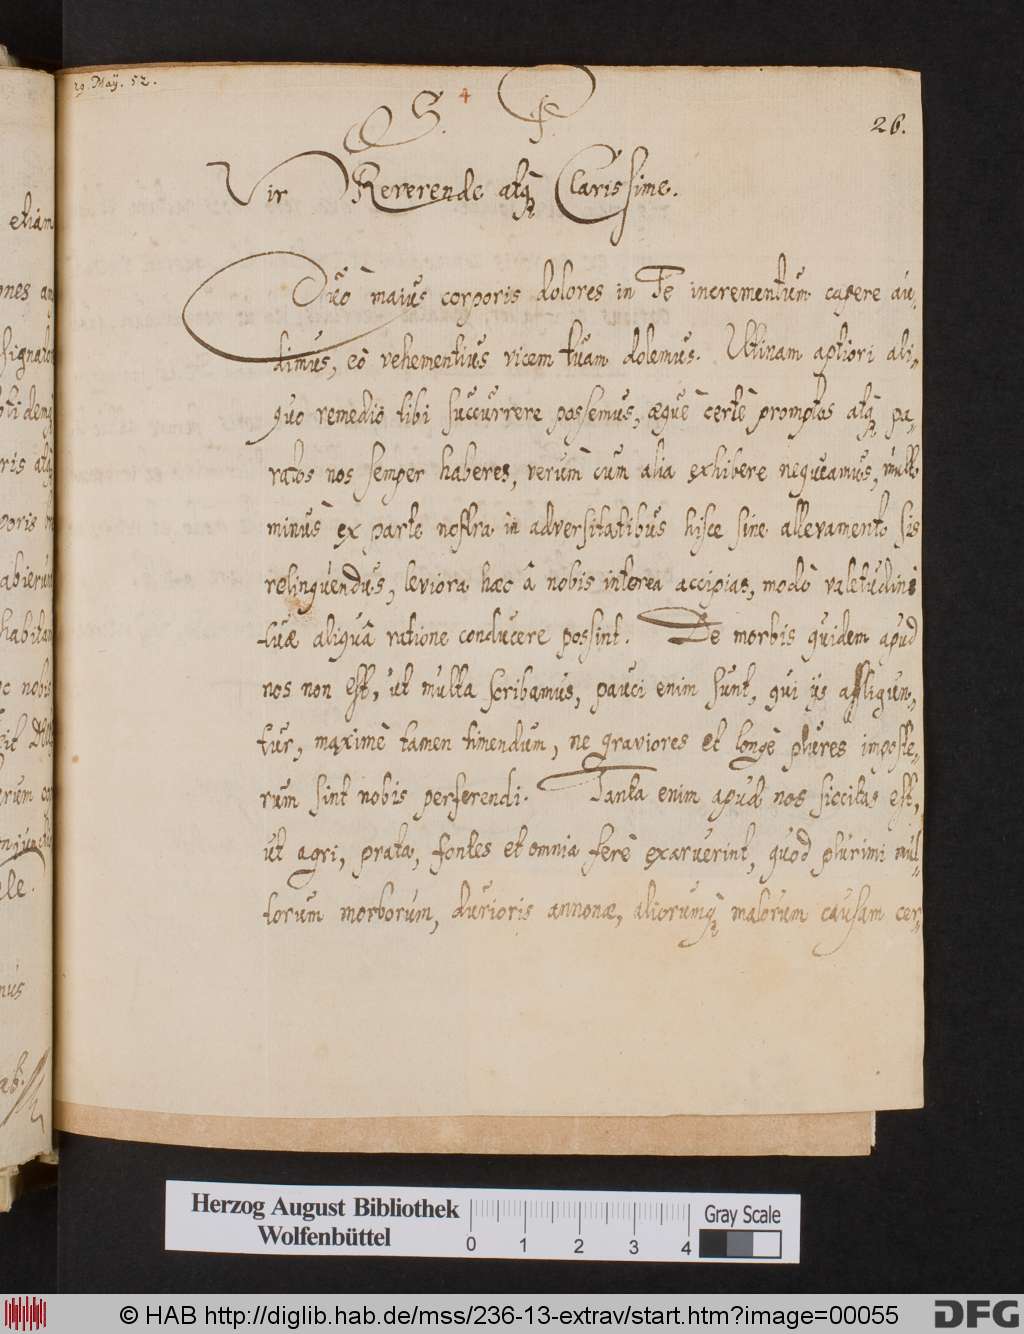 29. Maÿ. 52.
4
S. P.
26.
Vir Reverende atq́ Clarissime.
Quò maius corporis dolores in Te incrementum capere áu-
dimus, eò vehementius vicem tuam dolemus. Utinam aptiori ali-
quo remediô tibi succurrere possemus, æquè certè promptos atq́ pa-
ratos nos semper haberes, verùm cum alia exhibere nequeamus, multo
minùs ex parte nostra in adversitatibus hisce sine allevamento sis
relinquendus, leviora hæc â nobis interea accipias, modò valetudini
tuæ aliquâ ratione conducere possint. De morbis quidem apud
nos non est, ut multa scribamus, pauci enim sunt, qui ijs affligun-
tur, maximè tamen timendum, ne graviores et longè plures imposte-
rum sint nobis perferendi. Tanta enim apud nos siccitas est,
ut agri, prata, fontes et omnia ferè exaruerint, quod plurimi mul-
torum morborum, durioris annonæ, aliorumq́ malorum causam cer-
etiam
ones an
signato
ris atq́
poris
abierun
habitan
oc nobis
erum cor
ele.
Herzog August Bibliothek
Wolfenbüttel
0 1 2 3 4
Gray Scale
© HAB http://diglib.hab.de/mss/236-13-extrav/start.htm?image=00055
DFG